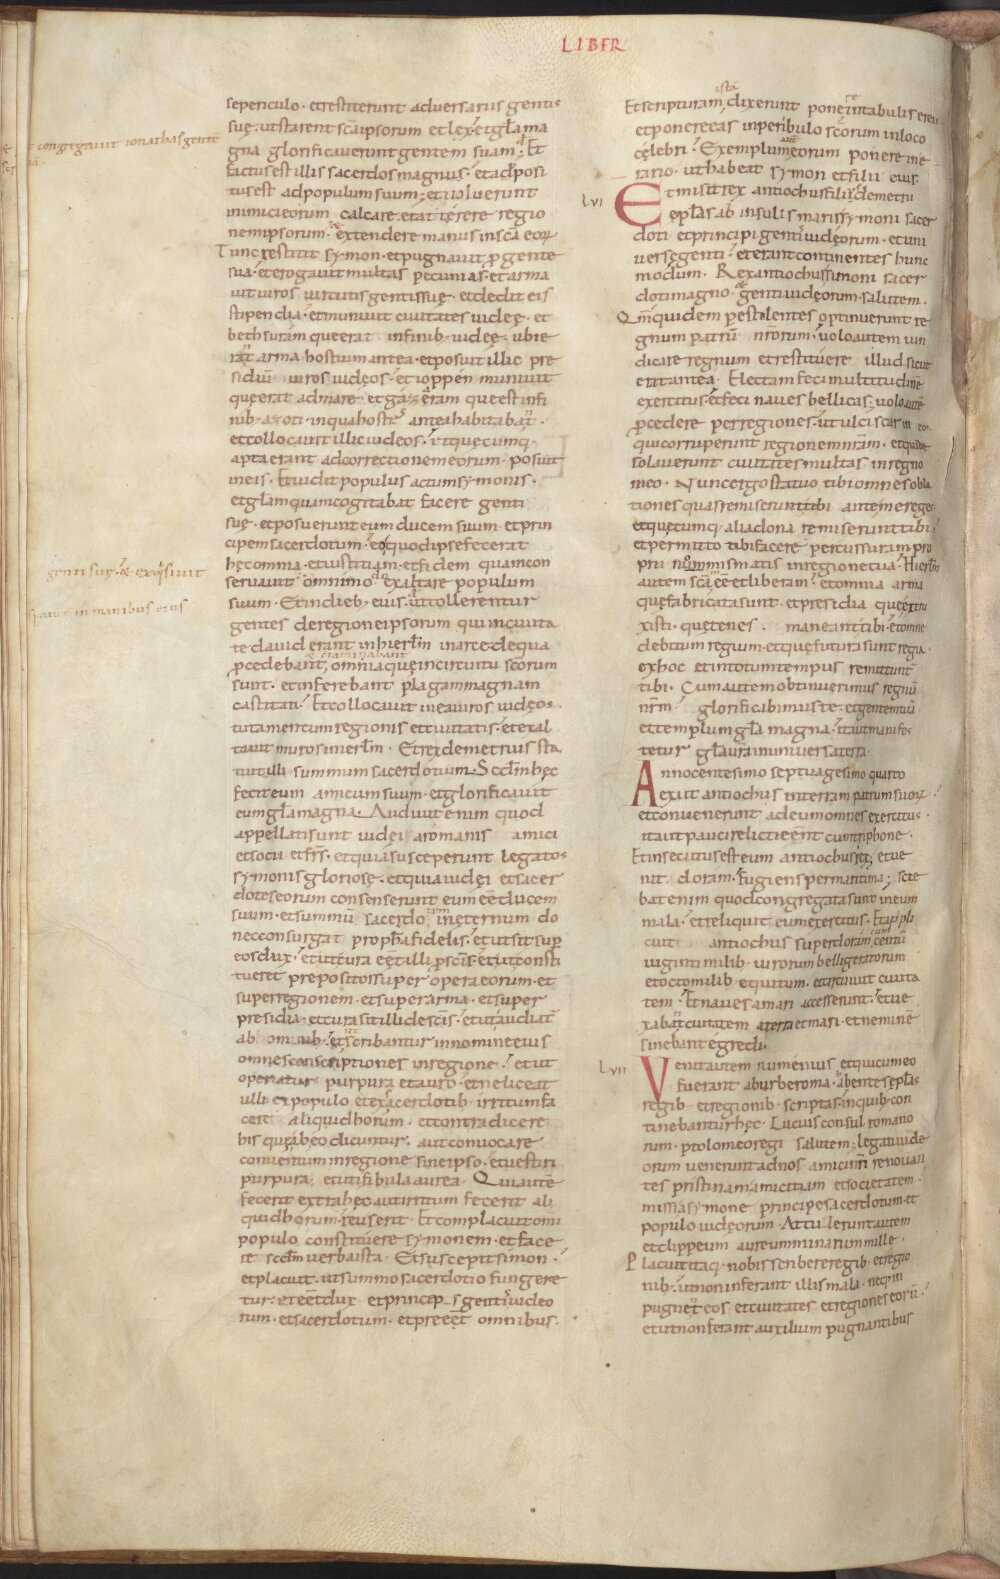 LIBER
congregavit ionathas gentē
sepericulo · et restiterunt adversariis gentis
sue · ut starent sc̄a ipsorum et lex · et gl̄a ma
gna glorificaverunt gentem suam · Et
factus est illis sacerdos magnus · et adposi
tus est ad populum suum · et voluerunt
inimici eorum calcare · et atterere regio
nem ipsorum · & extendere manus in sc̄a eorum
Tunc restitit symon · et pugnavit p gente
sua · et erogavit multas pecunias · et arma
vit viros virtutis gentis suę · et dedit eis
stipendia · et munivit civitates iudeę · et
bethsuram que erat in finib· iudeę · ubi e
rant arma hostium antea · et posuit illic pre
sidiū viros iudeos · et ioppen munivit
que erat ad mare · et gazeram que est in fi
nib· azoti · in qua hostes antea habitabant
et collocavit illic iudeos · et quecumq·
apta erant ad correctionem eorum · posuit
in eis · Et vidit populus actum symonis ·
et gl̄am quam cogitabat facere genti
suę · et posuerunt eum ducem suum · et prin
cipem sacerdotum · eo quod ipse fecerat
hec omnia · et iustitiam · et fidem quam con
genti suę · & exq̇sivit
servavit omnimo exaltare populum
suum · Et in dieb· eius
in manibus eius
ut tollerentur
gentes de regione ipsorum qui in civita
te david erant in hierl̄m in arce · de qua
pcedebant, omnia que in circuitu sc̄orum
sunt · et inferebant plagam magnam
castitati · Et collocavit in ea viros iudeos ·
tutamentum regionis et civitatis · et exal
tavit muros in ierl̄m · Et rex demetrius sta
tuit illi summum sacerdotium · Scd̄m hęc
fecit eum amicum suum · et glorificavit
eum gl̄a magna · Audivit enim quod
appellati sunt iudei a romanis amici
et socii et fr̄s · et quia susceperunt legatos
symonis gloriose · et quia iudei et sacer
dotes eorum consenserunt eum eē ducem
suum · et summū sacerdo in eternum do
nec consurgat propheta fidelis · et ut sit sup
eos dux · et ut cura eēt illi p sc̄is · et ut consti
tueret prepositos super opera eorum · et
super regionem · et super arma · et super
presidia · et cura sit illi de sc̄is · et ut audiat̄
ab omnib· et scribantur in nomine eius
omnes conscriptiones in regione · et ut
operiatur purpura et auro · et ne liceat
ulli ex populo et ex sacerdotib· irritum fa
cere aliquid horum · et contradicere
his que ab eo dicuntur · aut convocare
conventum in regione sine ipso · et vestiri
purpura · et uti fibula aurea · Qui autē
fecerit extra hęc aut irritum fecerit ali
quid horum · reus erit · Et complacuit omi
populo constituere symonem · et face
re scd̄m verba ista · Et suscepit simon ·
et placuit · ut summo sacerdotio fungere
tur · et eēt dux et princeps gentis iudeo
rum · et sacerdotum · et preeēt omnibus ·
Et scripturam istā dixerunt ponere in tabulis ereis
et ponere eas in peribulo sc̄orum in loco
celebri · Exemplum aut eorum ponere in e
rario · ut habeat symon et filii eius ·
lvi
Et misit rex antiochus filius demetrii
epl̄as ab insulis maris symoni sacer
doti et principi gentis iudęorum · et uni
versę genti · et erant continentes hunc
modum · Rex antiochus simoni sacer
doti magno · & genti iudęorum · salutem ·
Qm̄ quidem pestilentes optinuerunt re
gnum patrū nr̄orum · volo autem vin
dicare regnum et restituere illud sicut
erat antea · Electam feci multitudinē
exercitus · et feci naves bellicas · volo autē
pcedere per regiones · ut ulciscar in eos
qui corruperunt regionem nr̄am · et qui de
solaverunt civitates multas in regno
meo · Nunc ergo statuo tibi omnes obla
tiones quas remiserunt tibi ante me reges
et quęcumq· alia dona remiserunt tibi ·
et permitto tibi facere percussuram pro
prii nomismatis in regione tua · Hierl̄m
autem sc̄am eē et liberam · et omnia arma
que fabricata sunt · et presidia que extru
xisti · que tenes · maneant tibi · et omne
debitum regium · et que futura sunt regia ·
ex hoc et in totum tempus remittunt̄
tibi · Cum autem obtinuerimus regnū
nr̄m glorificabimus te · et gentem tuā
et templum gl̄a magna · ita ut manifes
tetur gl̄a vr̄a in universa terra ·
Anno centesimo septuagesimo quarto
exiit antiochus in terram patrum suorum ·
et convenerunt ad eum omnes exercitus ·
ita ut pauci relicti eēnt cum triphone ·
Et insecutus est eum antiochus rex · et ve
nit doram · fugiens per maritima · scie
bat enim quod congregata sunt in eum
mala · et reliquit eum exercitus · Et appli
cuit antiochus super doram cum centū
viginti milib· virorum belligeratorum
et octo milib· equitum · et circuivit civita
tem · Et naves a mari accesserunt · et ve
xabant civitatem a terra et mari · et neminē
sinebant egredi ·
lvii
Venit autem numenius et qui cum eo
fuerant ab urbe roma · habentes epl̄as
regib· et regionib· scriptas · in quib· con
tinebantur hęc · Lucius consul romano
rum · ptolomeo regi salutem · legati iude
orum venerunt ad nos amici nr̄i renovan
tes pristinam amicitiam et societatem ·
missi a symone principe sacerdotum · et
populo iudęorum · Attulerunt autem
et clippeum aureum minarum mille ·
Placuit itaq· nobis scribere regib· et regio
nib· ut non inferant illis mala · neq· in
pugnent eos et civitates et regiones eorū ·
et ut non ferant auxilium pugnantibus